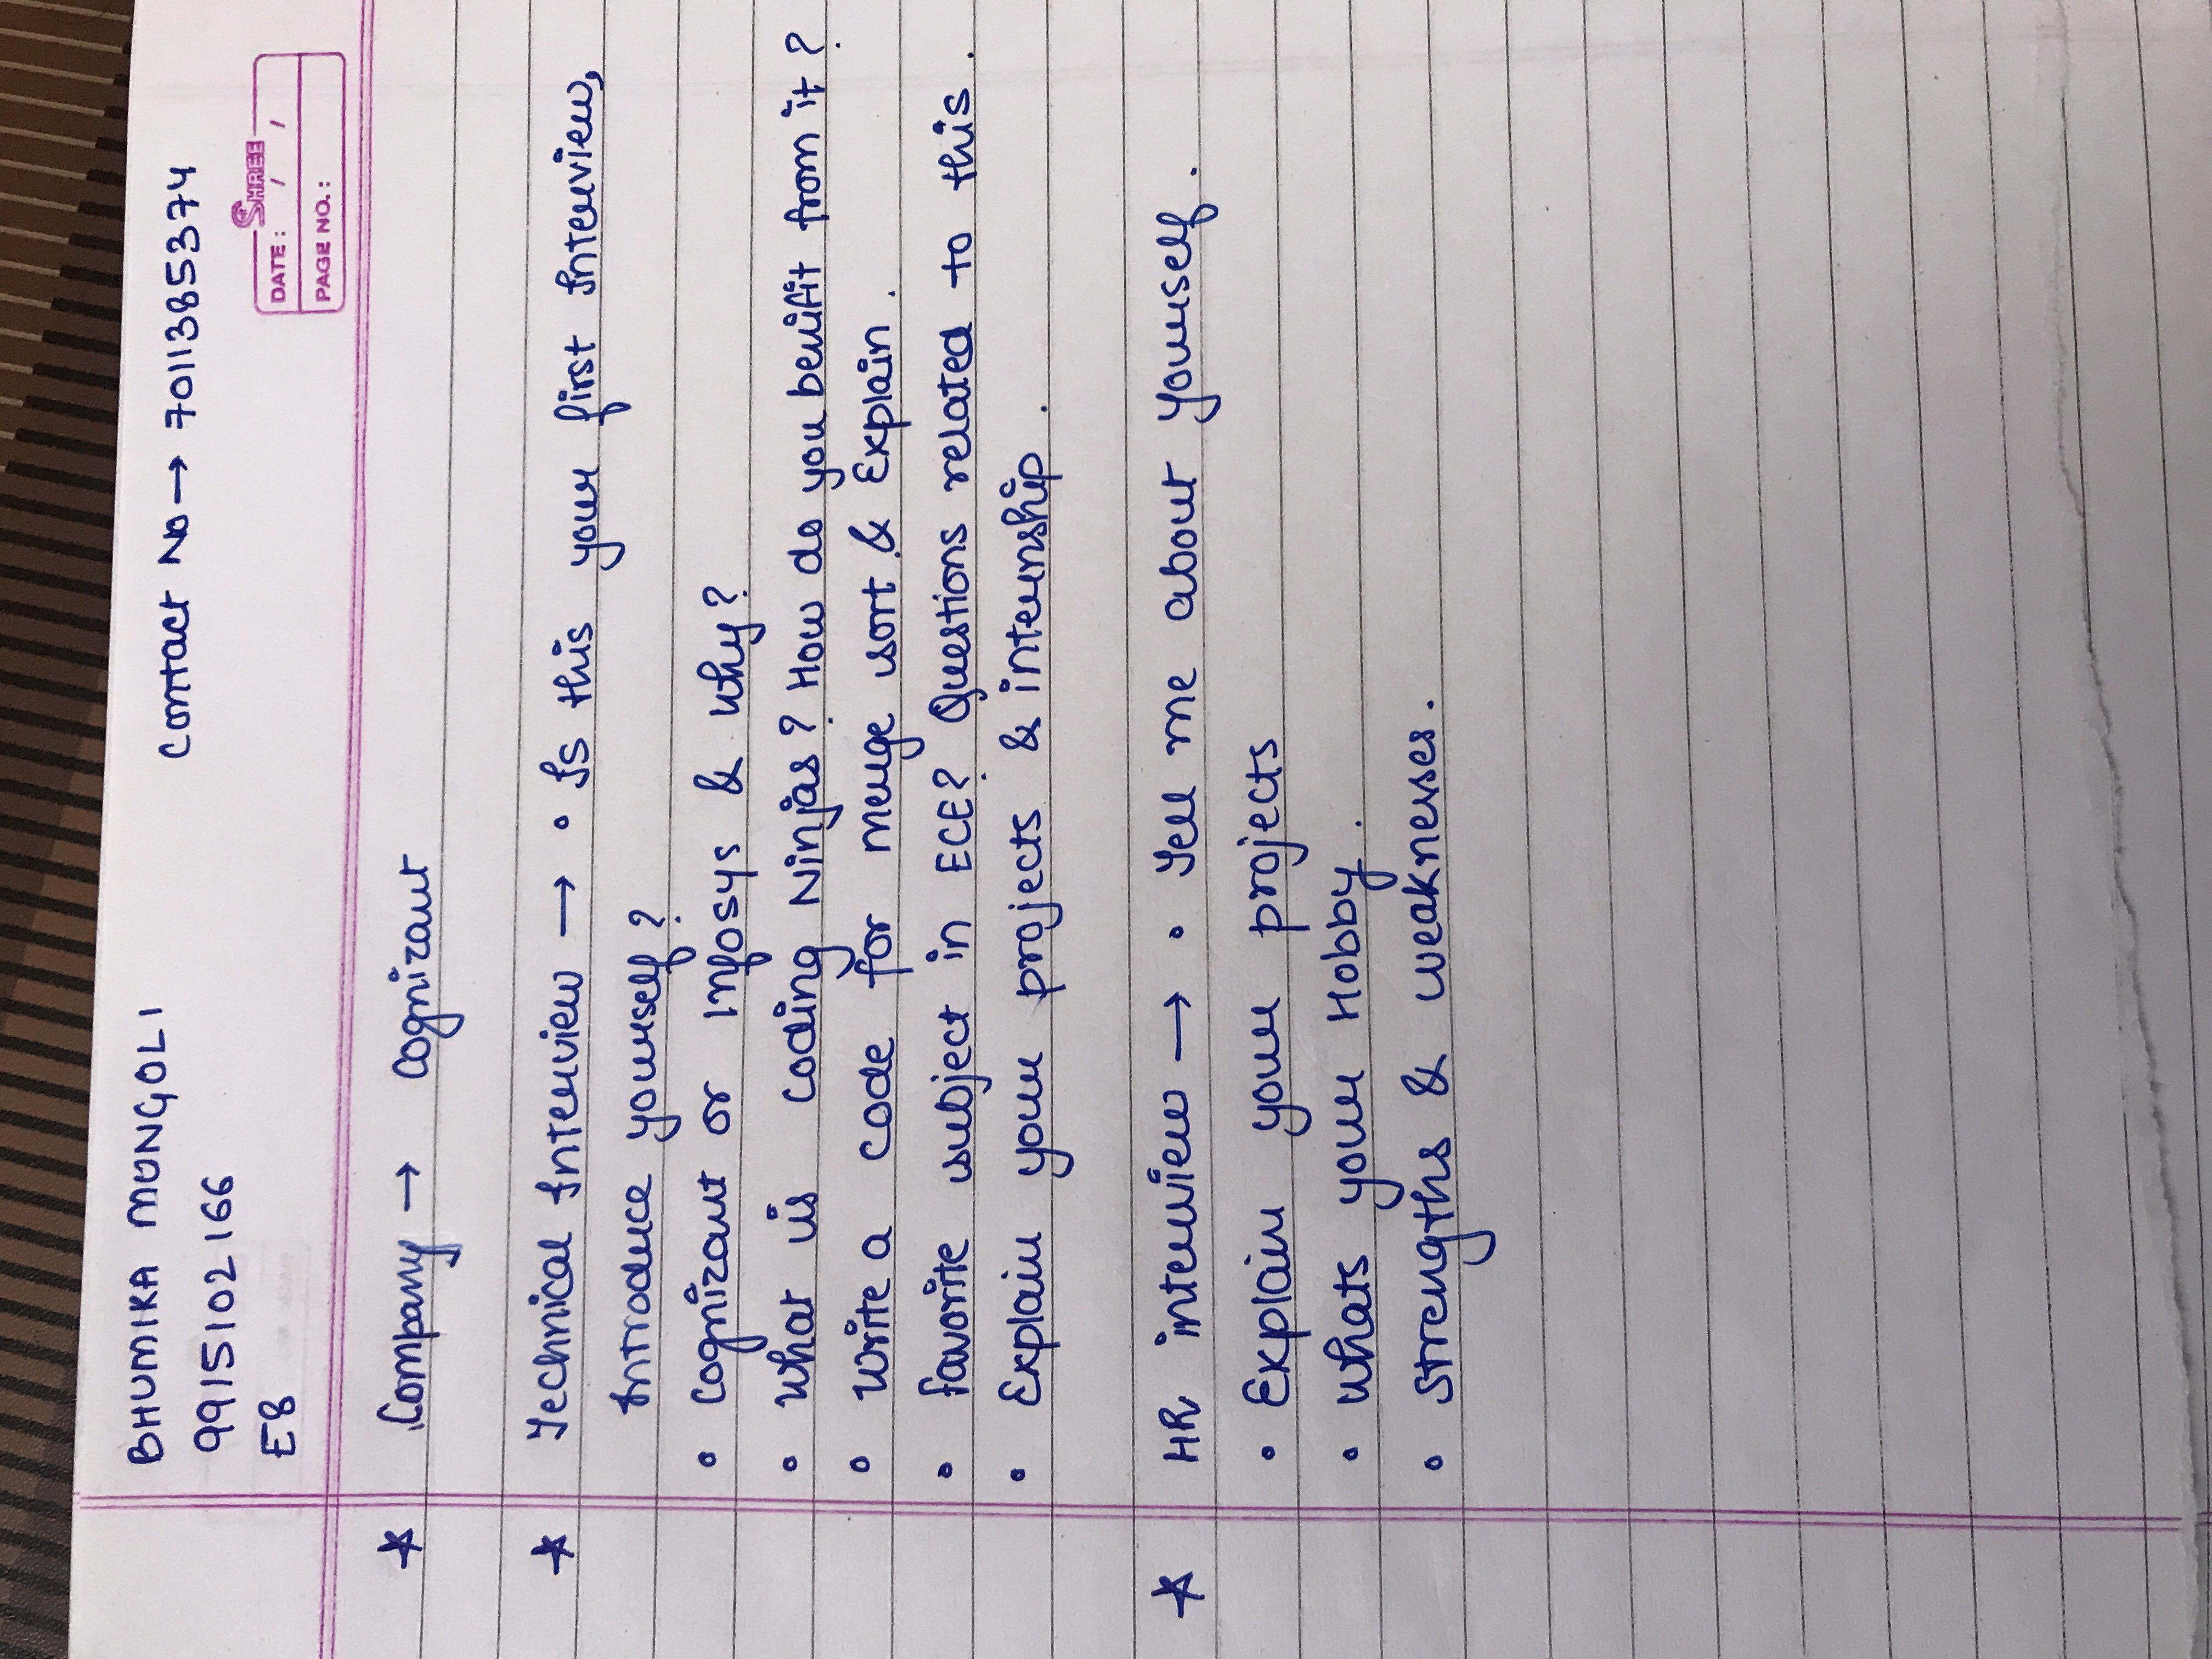 BHUMIKA MUNGOLI
Contact No → 7011385374
9915102166
E8
SHREE
DATE : / /
PAGE NO. :
* Company → Cognizant
* Technical Interview → • Is this your first Interview,
Introduce yourself?
• Cognizant or Infosys & Why?
• What is Coding Ninjas? How do you benifit from it?
• Write a code for merge sort & Explain.
• favorite subject in ECE? Questions related to this.
• Explain your projects & internship.
* HR interview → • Tell me about yourself.
• Explain your projects
• Whats your Hobby.
• Strengths & weaknesses.